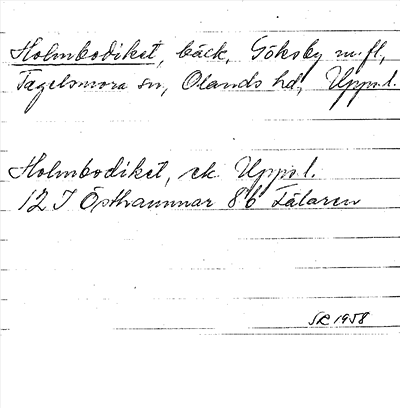 Holmbodiket, bäck, Göksby m.fl.,
Tegelsmora sn, Olands hd, Upps.l.
Holmbodiket, ek. Upps.l.
12 I Östhammar 8 b Tälaren
SR 1958